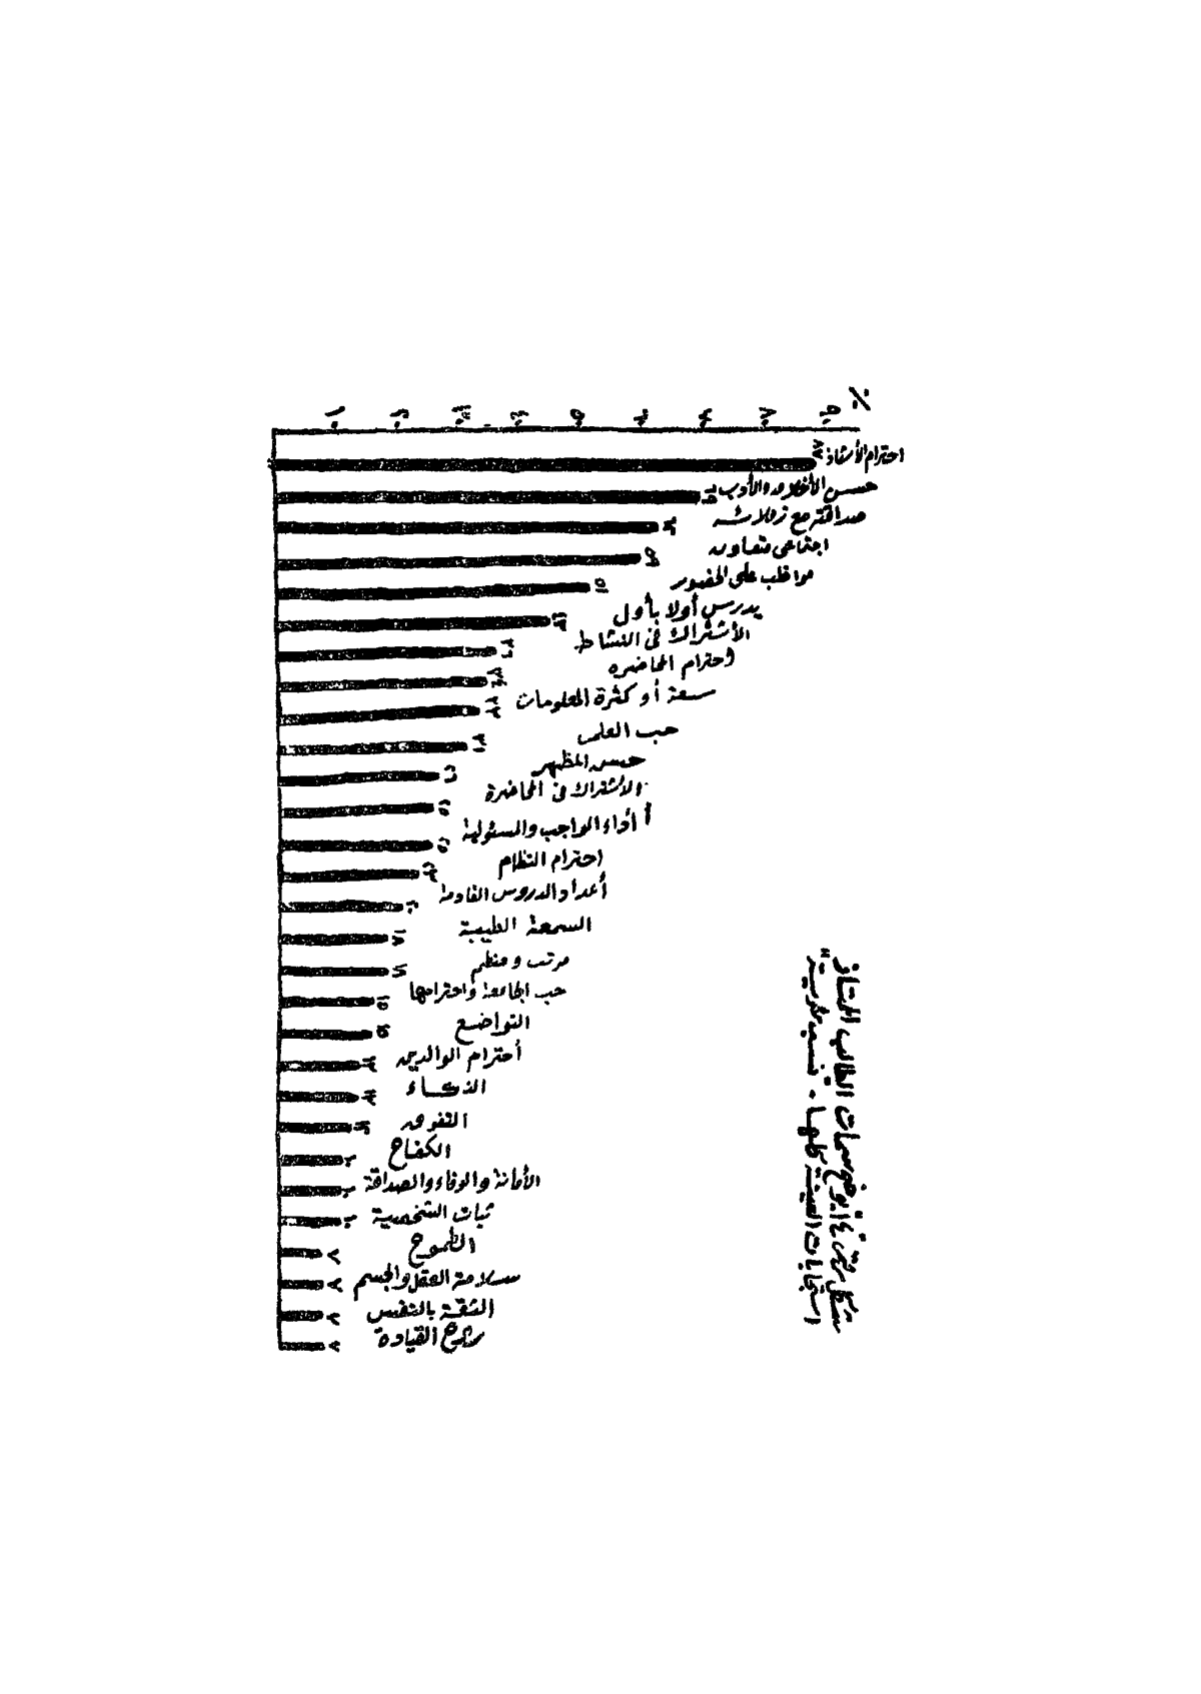 ٪
١٠ ٢٠ ٣٠ ٤٠ ٥٠ ٦٠ ٧٠ ٨٠ ٩٠
احترام الأستاذ ٨٨
حسن الأخلاق والأدب
صداقته مع زملائه
اجتماعى متعاون
مواظب على الحضور ٥١
يدرس أولا بأول
الأشتراك فى النشاط
احترام المحاضره
سعة أو كثرة المعلومات
حب العلم
حسن المظهر
الاشتراك فى المحاضرة
أداء الواجب والمسئولية
احترام النظام
أعداد الدروس القادمة
السمعة الطيبة ١٨
مرتب ومنظم
حب الجامعة واحترامها ١٥
التواضع ١٥
أحترام الوالدين ١٣
الذكاء ١٣
التفوق
الكفاح
الأمانة والوفاء والصداقة
ثبات الشخصية
الطموح ٧
سلامة العقل والجسم ٧
الثقة بالنفس ٧
روح القيادة ٧
شكل رقم ١٤ يوضح سمات الطالب الممتاز "
استجابات العينة كلها - نسب مئوية "